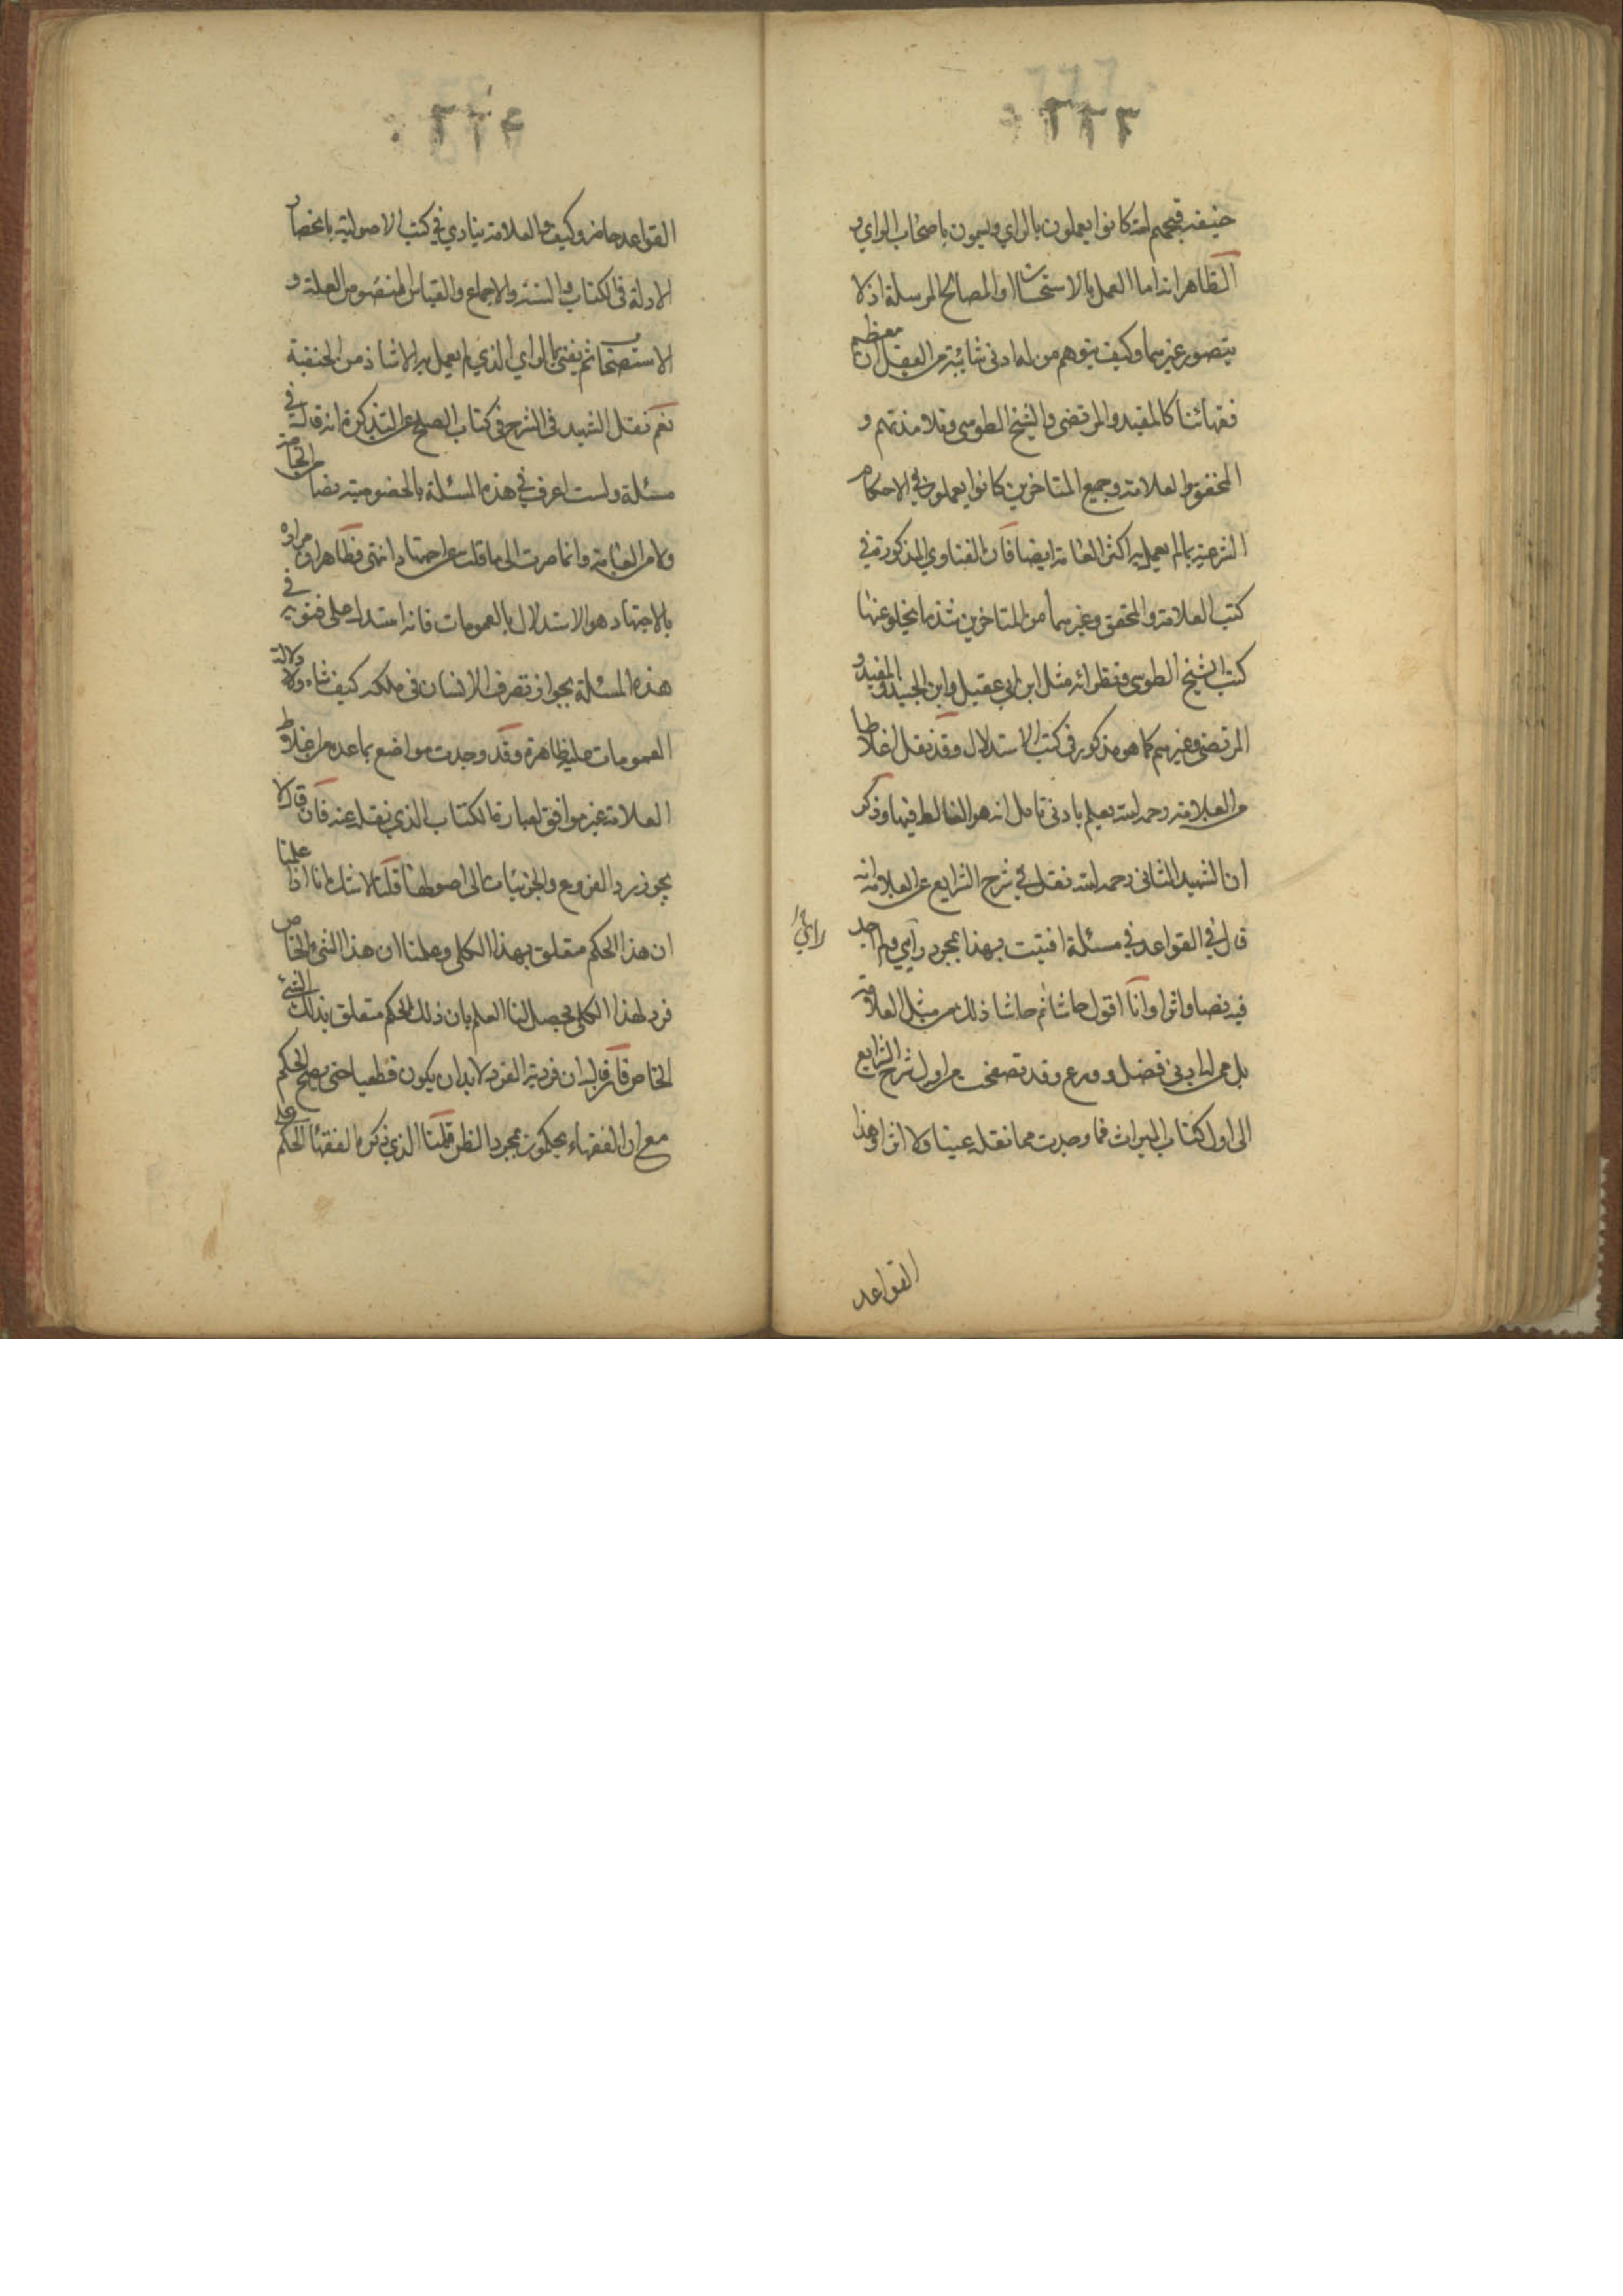 ٢٢٣
حنيفه قبحهم الله كانوا يعملون بالراي ويسمون باصحاب الراي و
الظاهر انه اما العمل بالاستحسان او المصالح المرسلة اذ لا
يتصور غيرهما وكيف يتوهم من له ادنى شائبة من العقل ان معظم
فقهائنا كالمفيد والمرتضى والشيخ الطوسي وتلامذتهم و
المحقق والعلامة وجميع المتاخرين كانوا يعملون في الاحكام
الشرعية بما لم يعمل به اكثر العامة ايضا فان الفتاوي المذكورة في
كتب العلامة والمحقق وغيرهما من المتاخرين شذ ما يخلو عنها
كتب الشيخ الطوسي ونظرائه مثل ابن ابي عقيل وابن الجنيد والمفيد و
المرتضى وغيرهم كما هو مذكور في كتب الاستدلال وقد نقل اغلاطا
من العلامة رحمه الله يعلم بادنى تامل انه هو الغالط فيها وذكر
ان الشهيد الثاني رحمه الله نقل في شرح الشرايع عن العلامة انه
قال في القواعد في مسئلة افتيت بهذا بمجرد رأيي ولم اجد
فيه نصا واثرا وانا اقول حاشا ثم حاشا ذلك من مثل العلامة
بل ممن له ادنى فضل وورع وقد تصفحت من اول شرح الشرايع
الى اول كتاب الميراث فما وجدت مما نقله عينا ولا اثرا وهذا
القواعد
٢٢٤
القواعد حاضر وكيف والعلامة ينادي في كتب الاصولية بانحصار
الادلة في الكتاب والسنة والاجماع والقياس المنصوص العلة و
الاستصحاب ثم يفتي بالراي الذي لم يعمل به الا شاذ من الحنفية
نعم نقل الشهيد في الشرح في كتاب الصلح عن التذكرة انه قال في
مسئلة ولست اعرف في هذه المسئلة بالخصوصية نصا من الخاصة
ولا من العامة وانما صرت الى ما قلت عن اجتهاد انتهى فظاهر ان مراده
بالاجتهاد هو الاستدلال بالعمومات فانه استدل على فتويه في
هذه المسئلة بجواز تصرف الانسان في ملكه كيف شاء ودلالة
العمومات عليه ظاهرة وقد وجدت مواضع مما عده من اغلاط
العلامة غير موافق لعبارة الكتاب الذي نقله عنه فان قال لا
يجوز رد الفروع والجزئيات الى اصولها قلنا لا شك انا اذا علمنا
ان هذا الحكم متعلق بهذا الكلي وعلمنا ان هذا الشيء الخاص
فرد لهذا الكلي يحصل لنا العلم بان ذلك الحكم متعلق بذلك الشيء
الخاص فان قال ان فردية الفرد لا بد ان يكون قطعيا حتى يصح الحكم
مع ان الفقهاء يحكمون بمجرد الظن قلنا الذي ذكره الفقهاء الحكم على